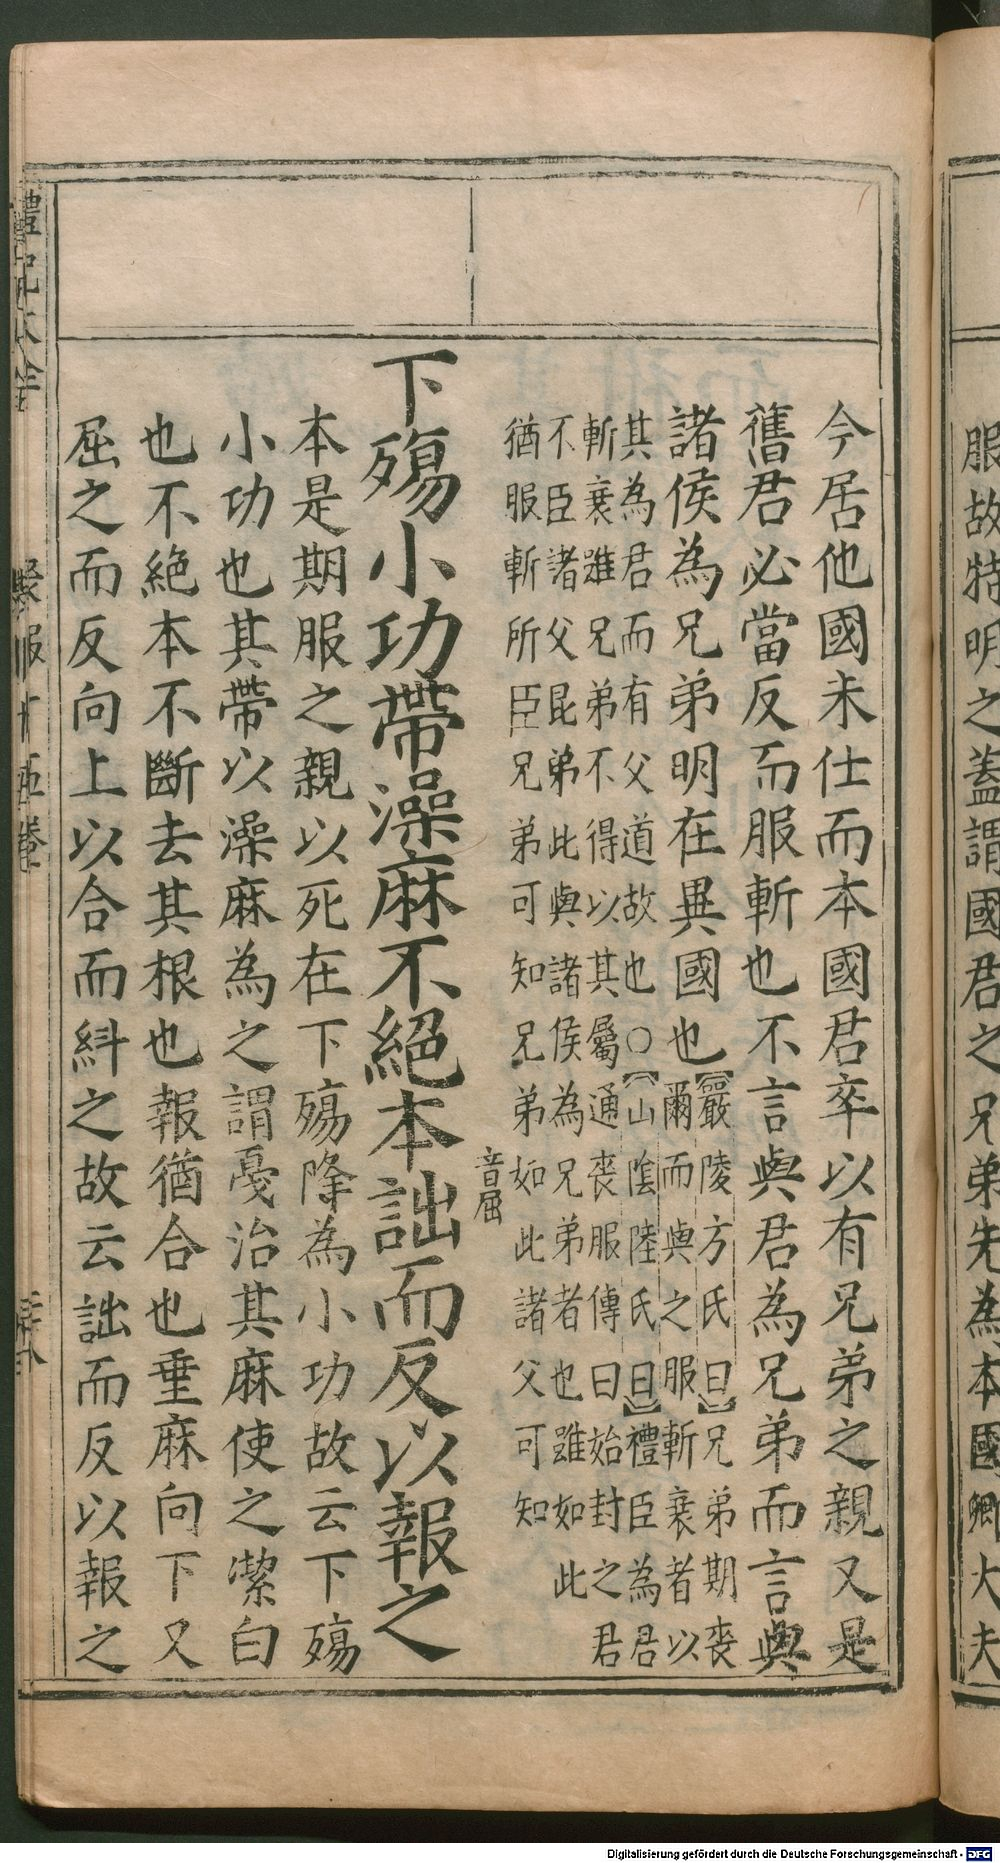 服故特明之蓋謂國君之兄弟先為本國卿大夫
今居他國未仕而本國君卒以有兄弟之親又是
舊君必當反而服斬也不言與君為兄弟而言與
諸侯為兄弟明在異國也
【嚴陵方氏曰】兄弟期喪
爾而與之服斬衰者以
其為君而有父道故也○【山陰陸氏曰】禮臣為君
斬衰雖兄弟不得以其屬通喪服傳曰始封之君
不臣諸父昆弟此與諸侯為兄弟者也雖如此
猶服斬所臣兄弟可知兄弟如此諸父可知
下殤小功帶澡麻不絕本詘而反以報之
音屈
本是期服之親以死在下殤降為小功故云下殤
小功也其帶以澡麻為之謂戞治其麻使之潔白
也不絕本不斷去其根也報猶合也垂麻向下又
屈之而反向上以合而糾之故云詘而反以報之
禮記大全
喪服十五卷
Digitalisierung gefördert durch die Deutsche Forschungsgemeinschaft - DFG